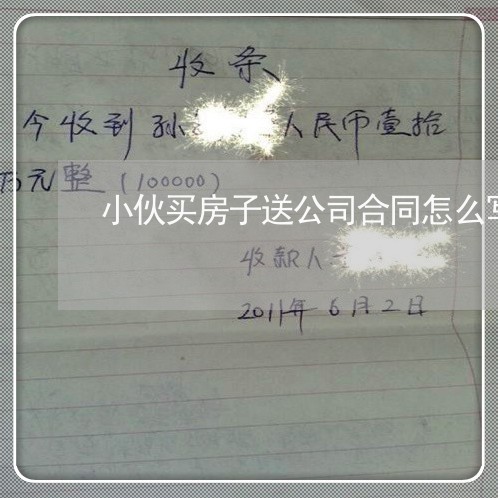 收条
今收到孙 人民币壹拾
万元整（100000）
小伙买房子送公司合同怎么写
收款人
2011年6月2日